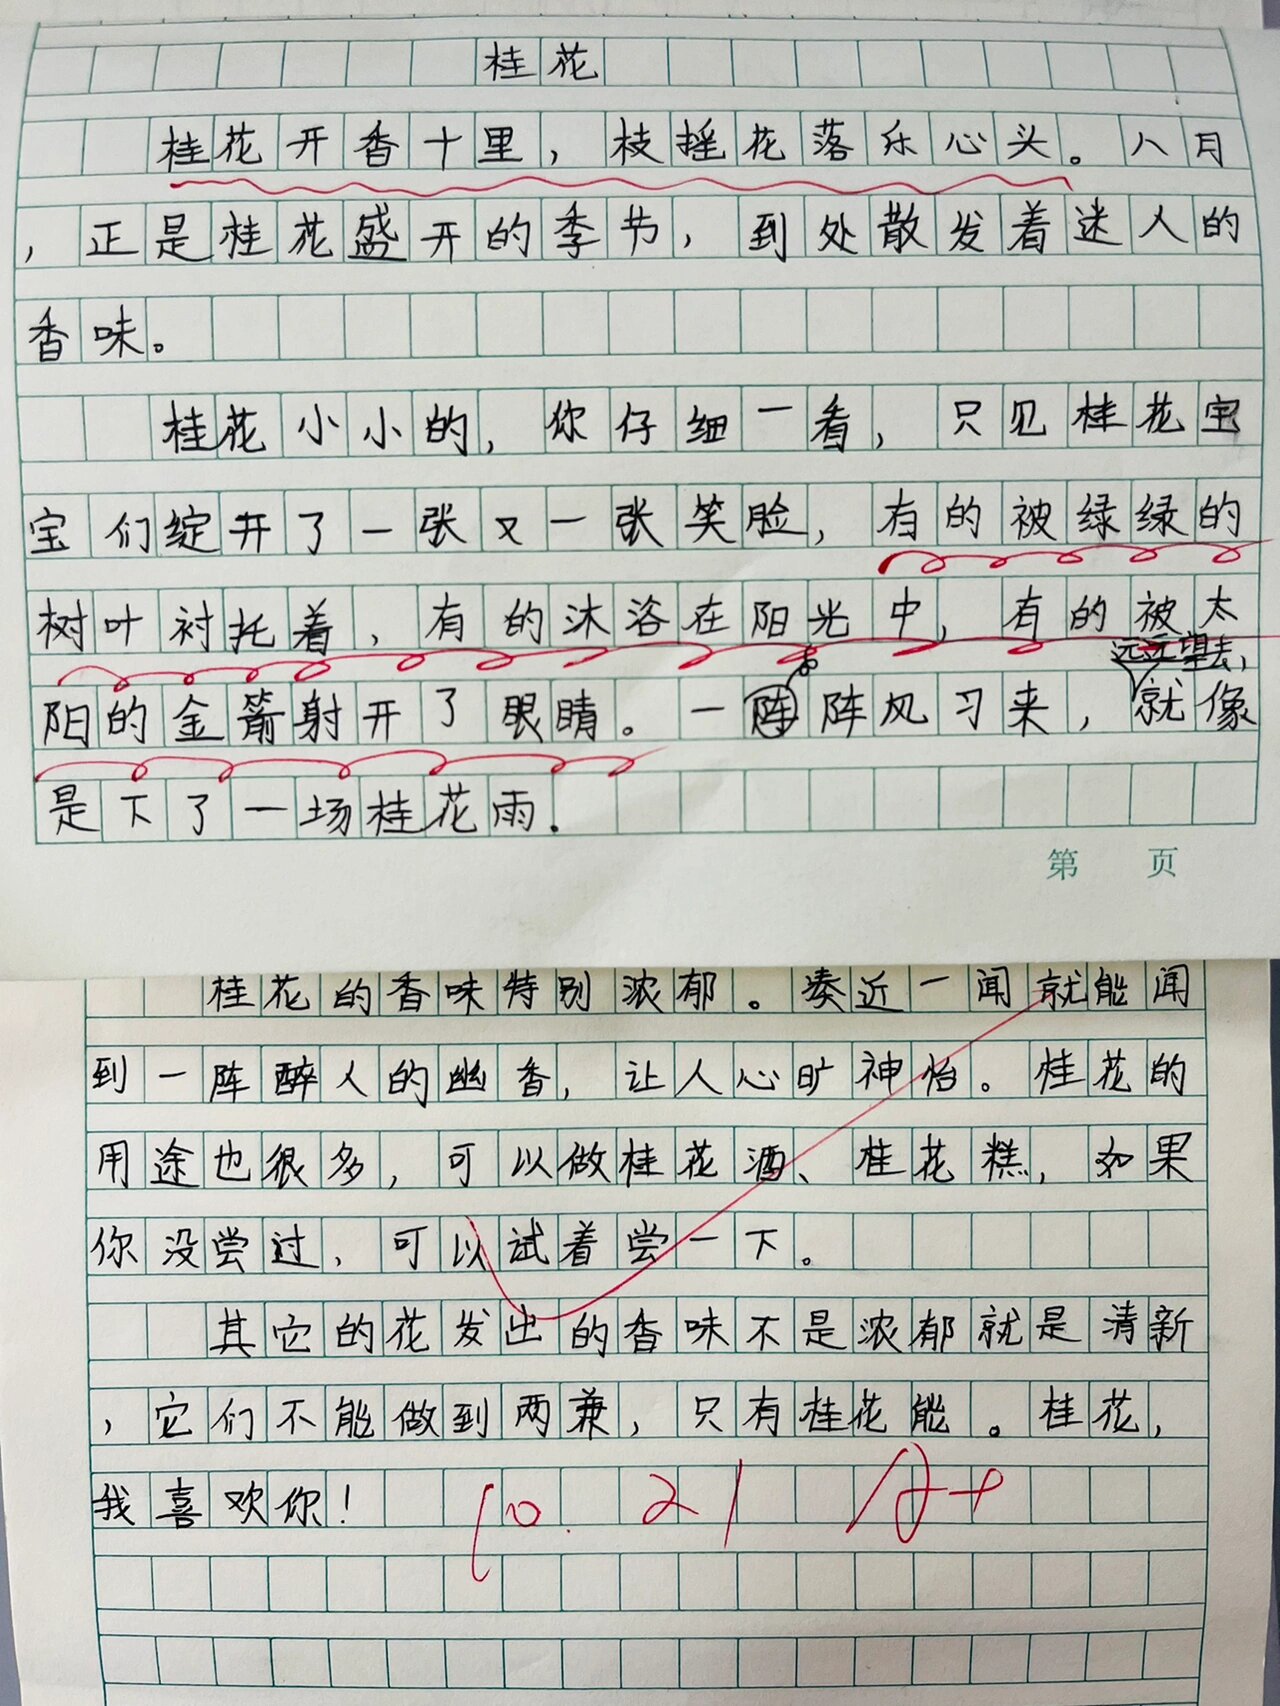 桂花
桂花开香十里，枝摇花落乐心头。八月
，正是桂花盛开的季节，到处散发着迷人的
香味。
桂花小小的，你仔细一看，只见桂花宝
宝们绽开了一张又一张笑脸，有的被绿绿的
树叶衬托着，有的沐浴在阳光中，有的被太
远远望去，
阳的金箭射开了眼睛。一阵阵风习来，就像
是下了一场桂花雨.
第 页
桂花的香味特别浓郁。凑近一闻就能闻
到一阵醉人的幽香，让人心旷神怡。桂花的
用途也很多，可以做桂花酒、桂花糕，如果
你没尝过，可以试着尝一下。
其它的花发出的香味不是浓郁就是清新
，它们不能做到两兼，只有桂花能。桂花，
我喜欢你！
10.21 A+